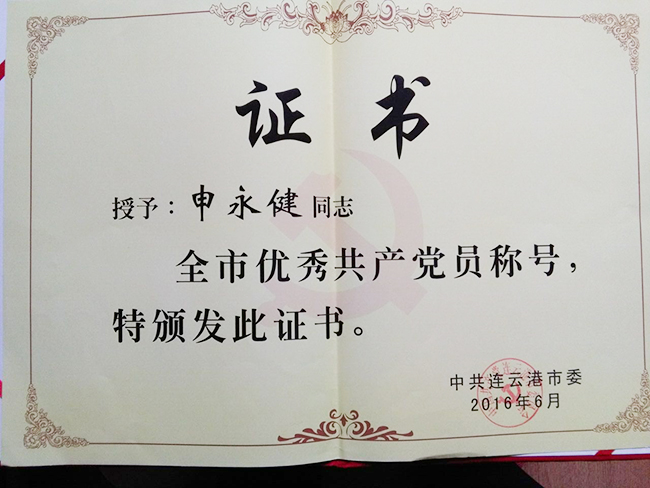 证书
授予：申永健同志
全市优秀共产党员称号，
特颁发此证书。
中共连云港市委
2016年6月